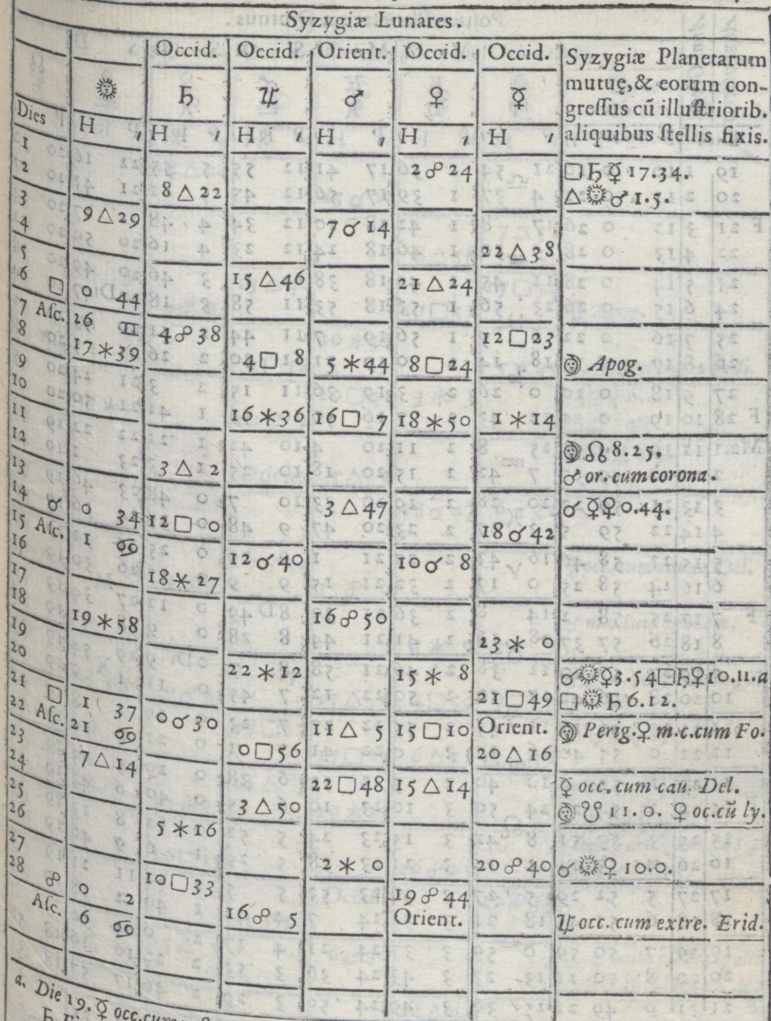 Syzygiæ Lunares.
Occid. Occid. Orient. Occid. Occid. Syzygiæ Planetarum
☉ ♄ ♃ ♂ ♀ ☿ mutuę, & eorum con-
gressus cũ illustriorib.
Dies H ′ H ′ H ′ H ′ H ′ H ′ aliquibus stellis fixis.
1 2☍24 □♄☿ 17.34.
2 8△22 △☉♂ 1.5.
3 9△29
4 7☌14
5 22△38
6 □ 0 44 15△46 21△24
7 Asc. 26 ♊ 4☍38 12□23
8 17✶39 4□ 8 5✶44 8□24 ☽ Apog.
9
10 16✶36 16□ 7 18✶50 1✶14
11 ☽☊ 8.25.
12 3△12 ♂ or. cum corona.
13 3△47 ☌☿♀ 0.44.
14 ☌ 0 34 12□ 0 18☌42
15 Asc. 1 ♋ 12☌40 10☌ 8
16 18✶27
17 16☍50
18 19✶58 23✶ 0
19
20 22✶12 15✶ 8 ☌☉☿3.54□♄♀10.11.a
21 □ 1 37 21□49 □☉♄ 6.12.
22 Asc. 21 ♋ 0☌30 11△ 5 15□10 Orient. ☽ Perig.♀ m.c.cum Fo.
23 7△14 0□56 20△16
24 22□48 15△14 ☿ occ. cum cau. Del.
25 3△50 ☽☋ 11.0. ♀ oc.cũ ly.
26 5✶16
27 2✶ 0 20☍40 ☌☉♀ 10.0.
28 ☍ 0 2 10□33 19☍44
Asc. 6 ♋ 16☍ 5 Orient. ♃ occ. cum extre. Erid.
a. Die 19. ☿ occ.cum